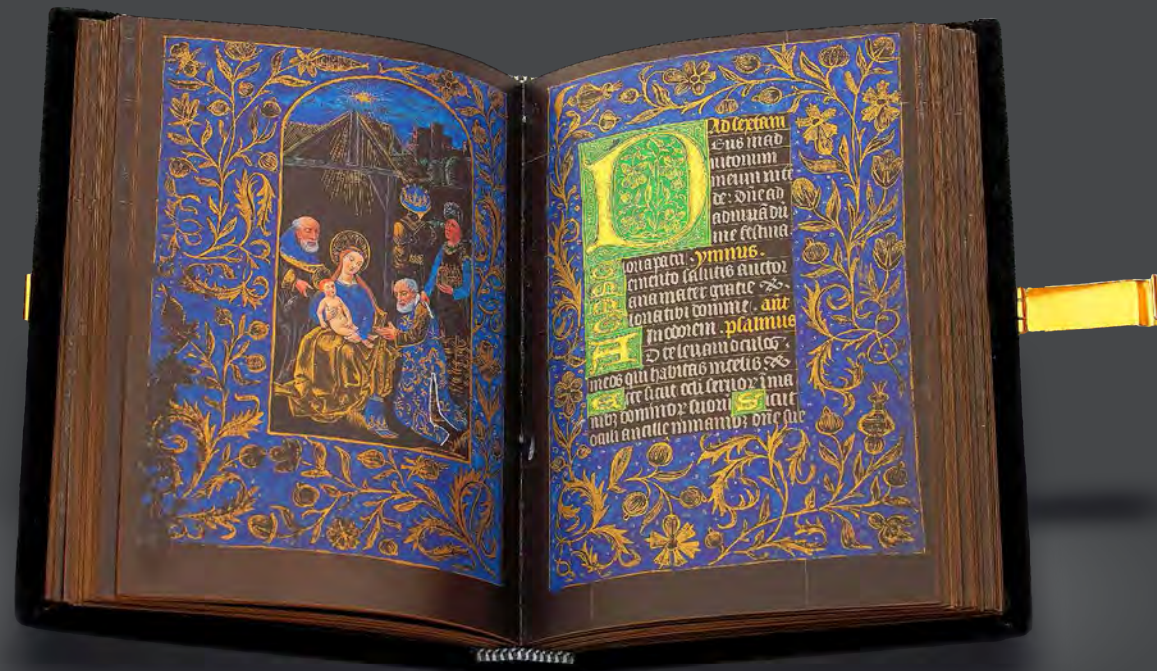 Ad sextam
Deus in ad
iutorium
meum inte
de: Dne ad
adiuuādū
me festina.
Gloria patri. ymnus.
Memento salutis auctor
Maria mater gratie
Gloria tibi domine. ant
In odorem. psalmus
AD te leuaui oculos
meos qui habitas in celis.
Ecce sicut oculi seruor
dominor suor Sicut
oculi ancille in manibz dne sue